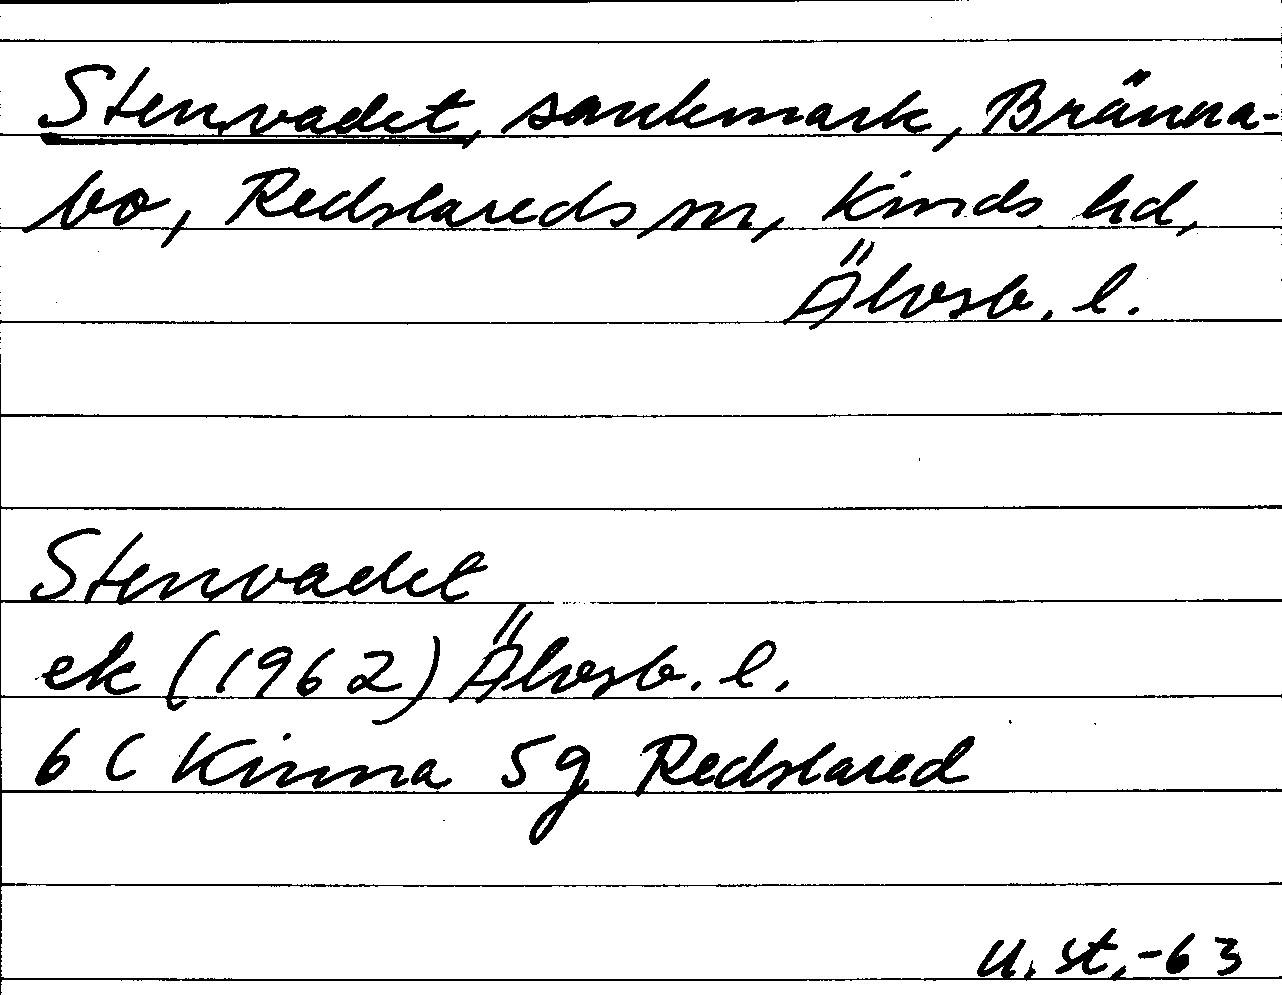 Stenvadet, sankmark, Bränna-
bo, Redslareds sn, Kinds hd,
Älvsb. l.
Stenvadet
ek (1962) Älvsb. l.
6 C Kinna 5g Redslared
U. St. -63